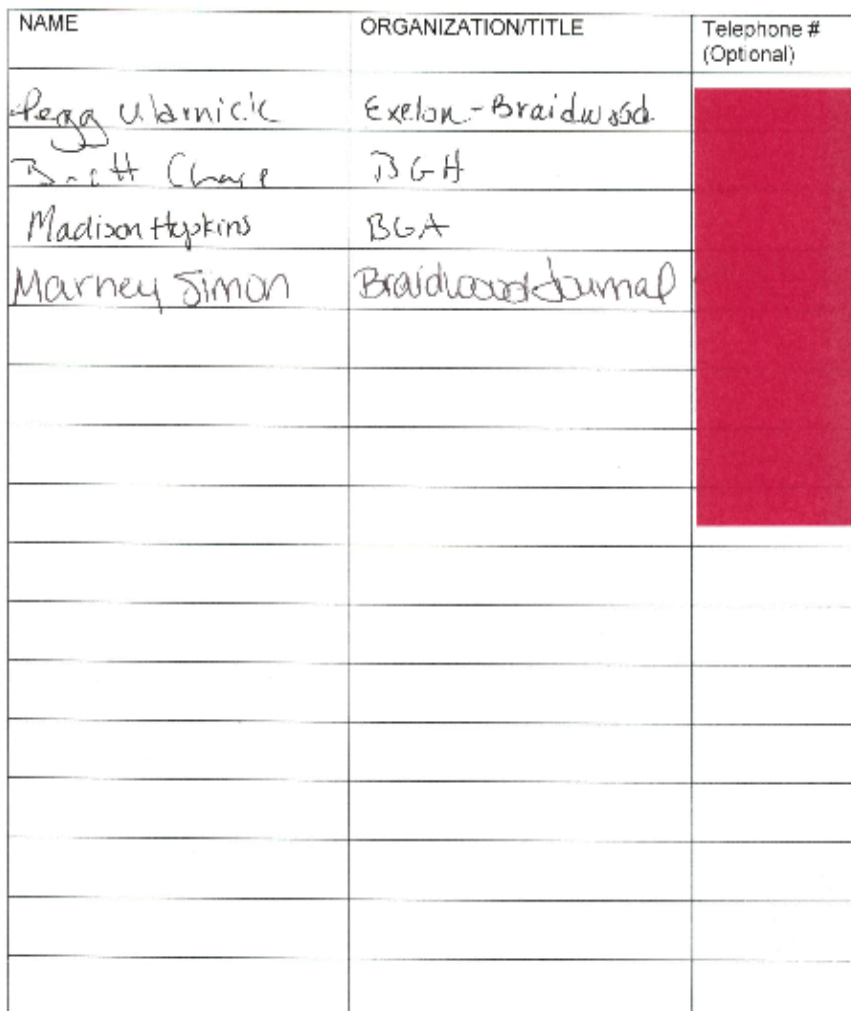 NAME ORGANIZATION/TITLE Telephone #
(Optional)
Pegg Exelon-Braidwood
Brett Chase BGA
Madison Hopkins BGA
Marney Simon Braidwood Journal